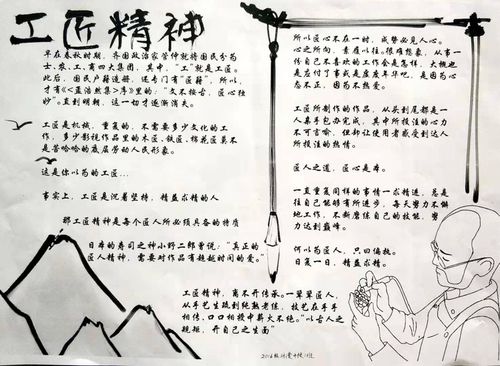 工匠精神
早在春秋时期，齐国政治家管仲就将国民分为
士、农、工、商四大集团，其中，“工”就是工匠。
此后，国民户籍造册，还专门有“匠籍”。所以，
才有《<孟浩然集>序》里的，“文不按古，匠心独
妙”。直到明朝，这一切才逐渐消失。
工匠是机械，重复的，不需要多少文化的工
作，多少影视作品里的木匠、铁匠、棉花匠莫不
是苦哈哈的底层劳动人民形象。
这是你以为的工匠...
事实上，工匠是沉着坚持，精益求精的人
那工匠精神是每个匠人所必须具备的特质
日本的寿司之神小野二郎曾说：“真正的
匠人精神，需要对作品有超越时间的爱。”
工匠精神，离不开传承。一辈辈匠人，
从手艺生疏到纯熟老练，技艺在手手
相传、口口相授中薪火不绝。“以古人之
规矩，开自己之生面”
所以匠心不在一时，成势必见人心。
心之所向，素履以往。很难想象，从事一
份自己不喜欢的工作会是怎样，大概也
是应付了事或是庸庸早毕吧，是因为心
态不正，因为不热爱。
工匠所制作的作品，从头到尾都是一
人亲手包办完成，其中所投注的心力
不可言喻，但却让使用者感受到达人
所投注的热情。
匠人之道，匠心是本。
一直重复同样的事情一求精进，总是
往自己能够有所进步，每天努力不懈
地工作，不断磨练自己的技能，努
力达到巅峰。
何以为匠人，只因偏执。
日复一日，精益求精。